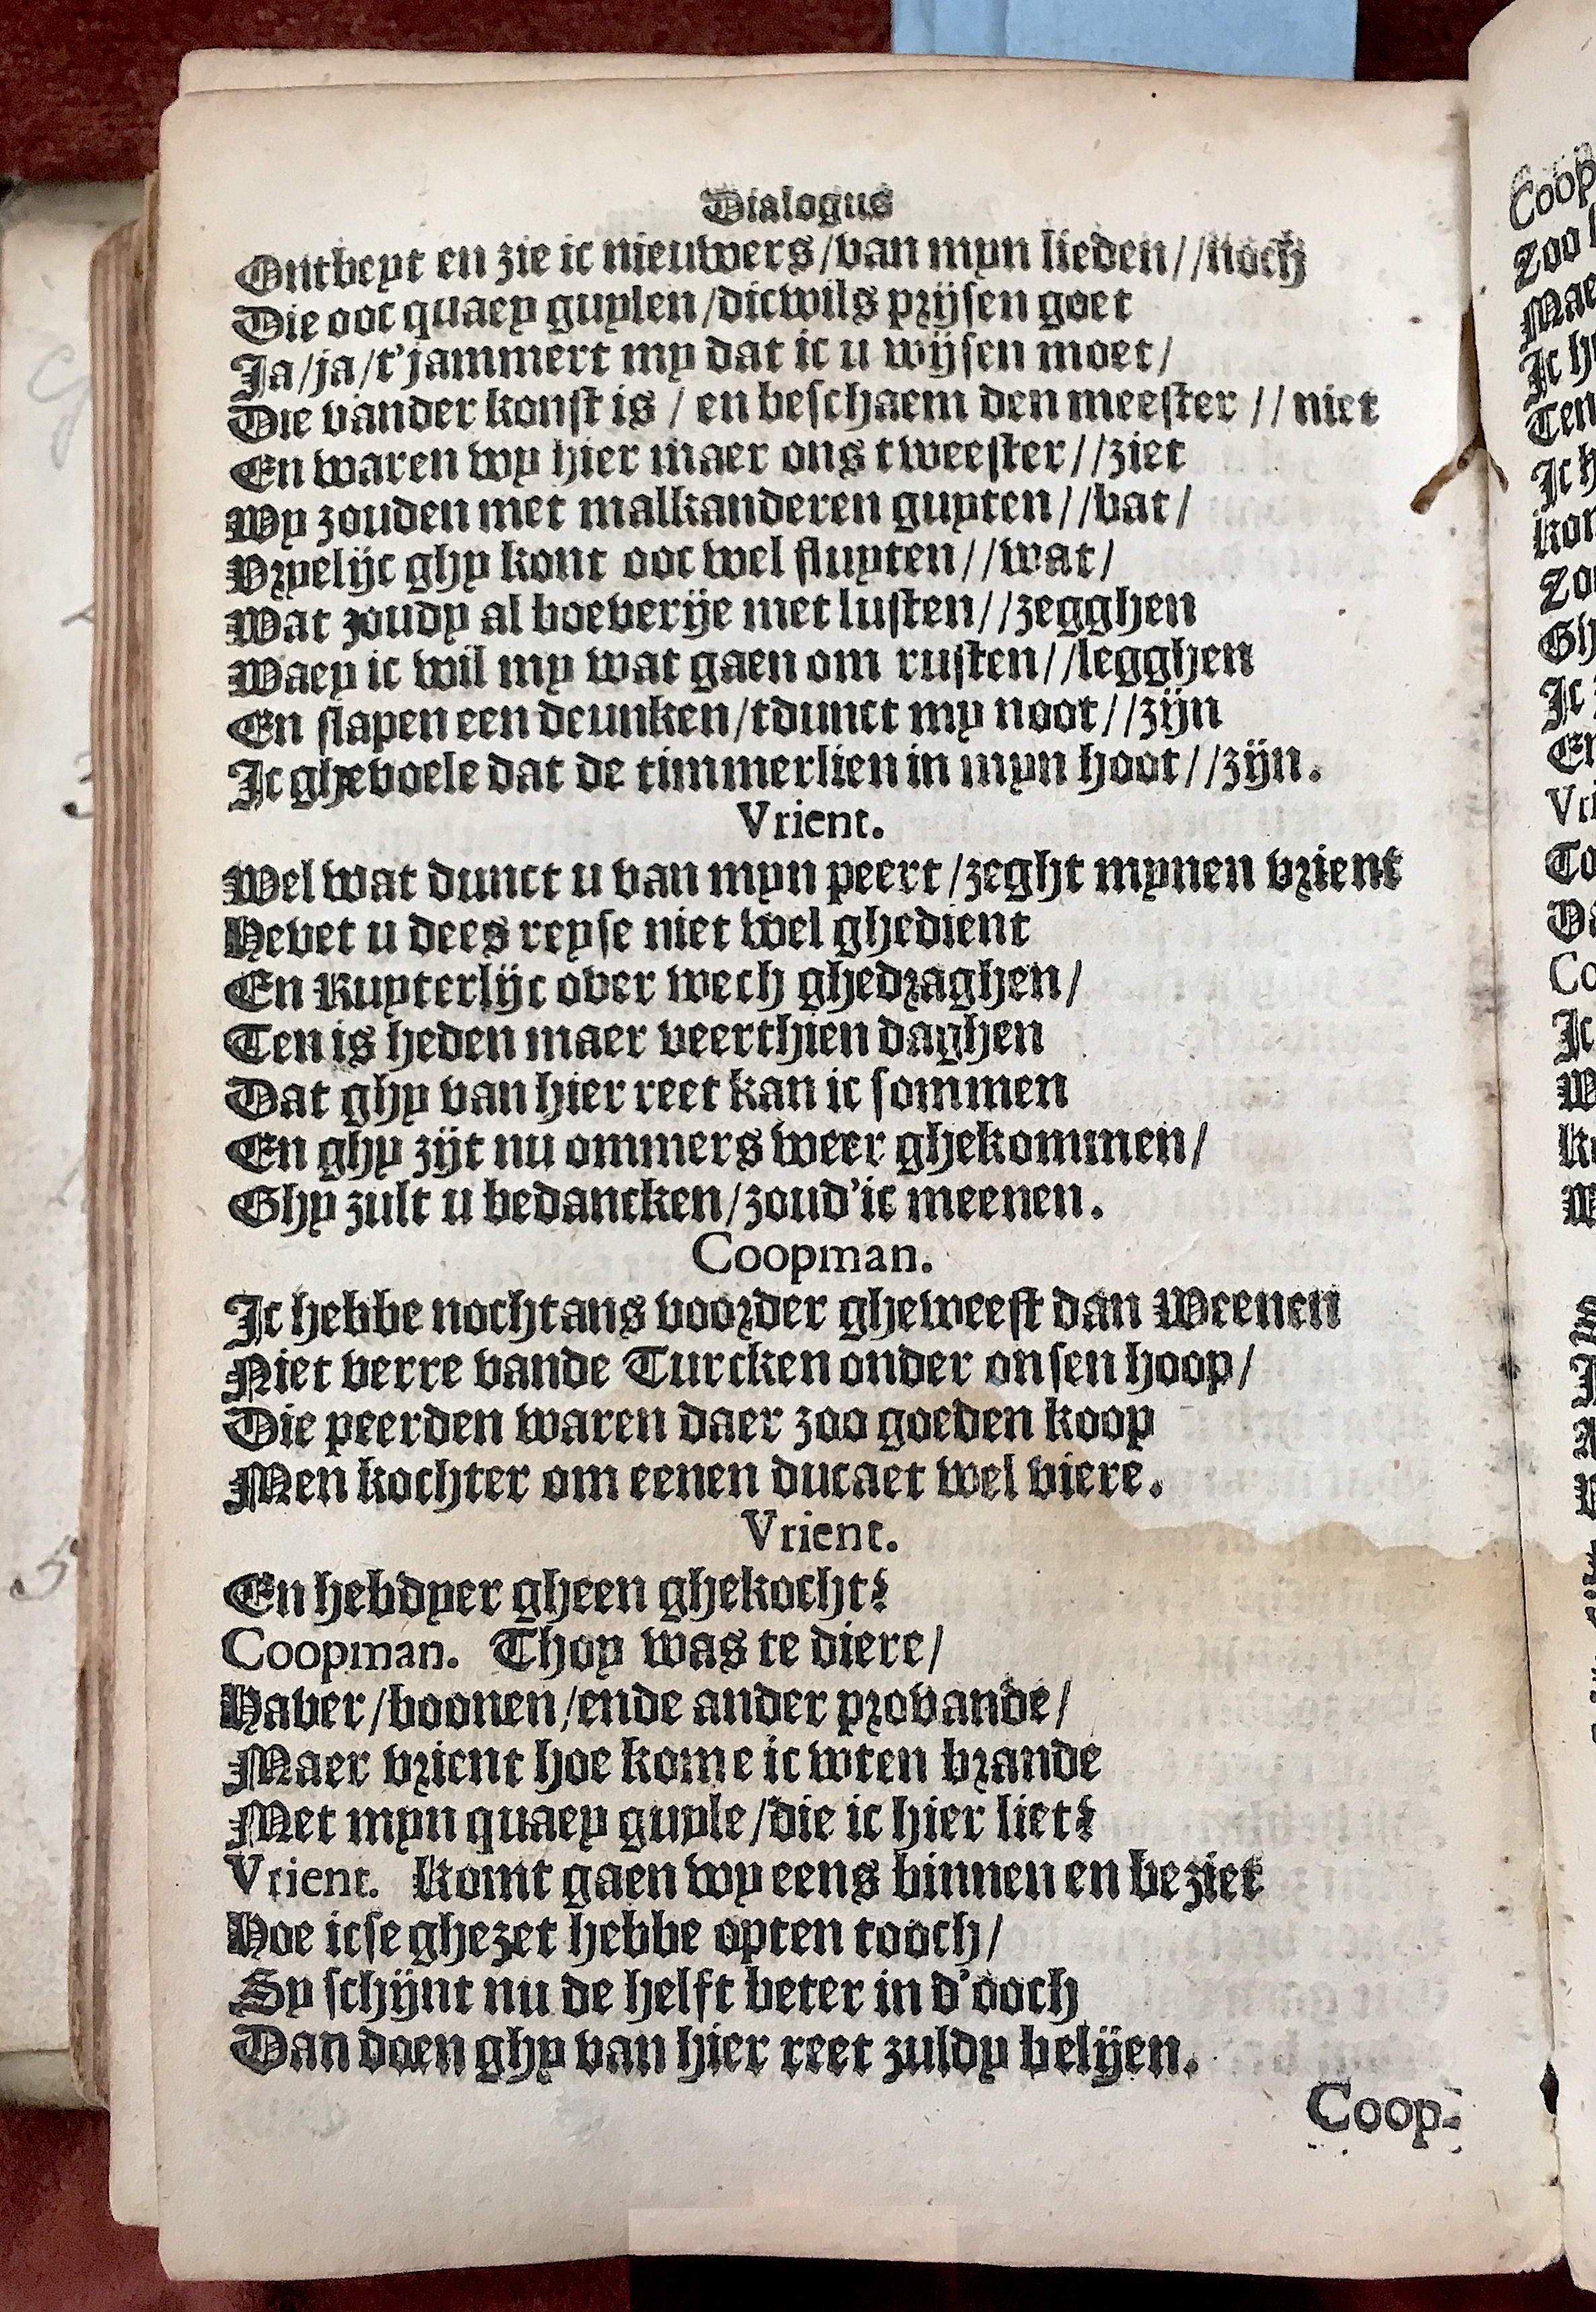 Dialogus
Ontbeyt en zie ic nieuwers/van myn lieden//noch
Die ooc quaey guylen/dicwils prijsen goet
Ja/ja/t'jammert my dat ic u wijsen moet/
Die vander konst is / en beschaem den meester // niet
En waren wy hier maer ons tweester//ziet
Wy zouden met malkanderen guyten//bat/
Vryelijc ghy kont ooc wel fluyten//wat/
Wat zoudy al boeverije met lusten//zegghen
Waey ic wil my wat gaen om rusten//legghen
En slapen een deunken/tdunct my noot//zijn
Ic ghevoele dat de timmerlien in myn hoot//zijn.
Vrient.
Wel wat dunct u van myn peert/zeght mynen vrient
Hevet u dees reyse niet wel ghedient
En Ruyterlijc over wech ghedraghen/
Ten is heden maer veerthien daghen
Dat ghy van hier reet kan ic sommen
En ghy zijt nu ommers weer ghekommen/
Ghy zult u bedancken/zoud'ic meenen.
Coopman.
Ic hebbe nochtans voorder gheweest dan Weenen
Niet verre vande Turcken onder onsen hoop/
Die peerden waren daer zoo goeden koop
Men kochter om eenen ducaet wel viere.
Vrient.
En hebdyer gheen ghekocht?
Coopman. Thoy was te diere/
Haver/boonen/ende ander provande/
Maer vrient hoe kome ic wten brande
Met myn quaey guyle/die ic hier liet?
Vrient. Komt gaen wy eens binnen en beziet
Hoe icse ghezet hebbe opten tooch/
Sy schijnt nu de helft beter in d'ooch
Dan doen ghy van hier reet zuldy belijen.
Coop-
Coop
Zoo
Mae
Ten
Gh
En
Vri
To
Co
Ic